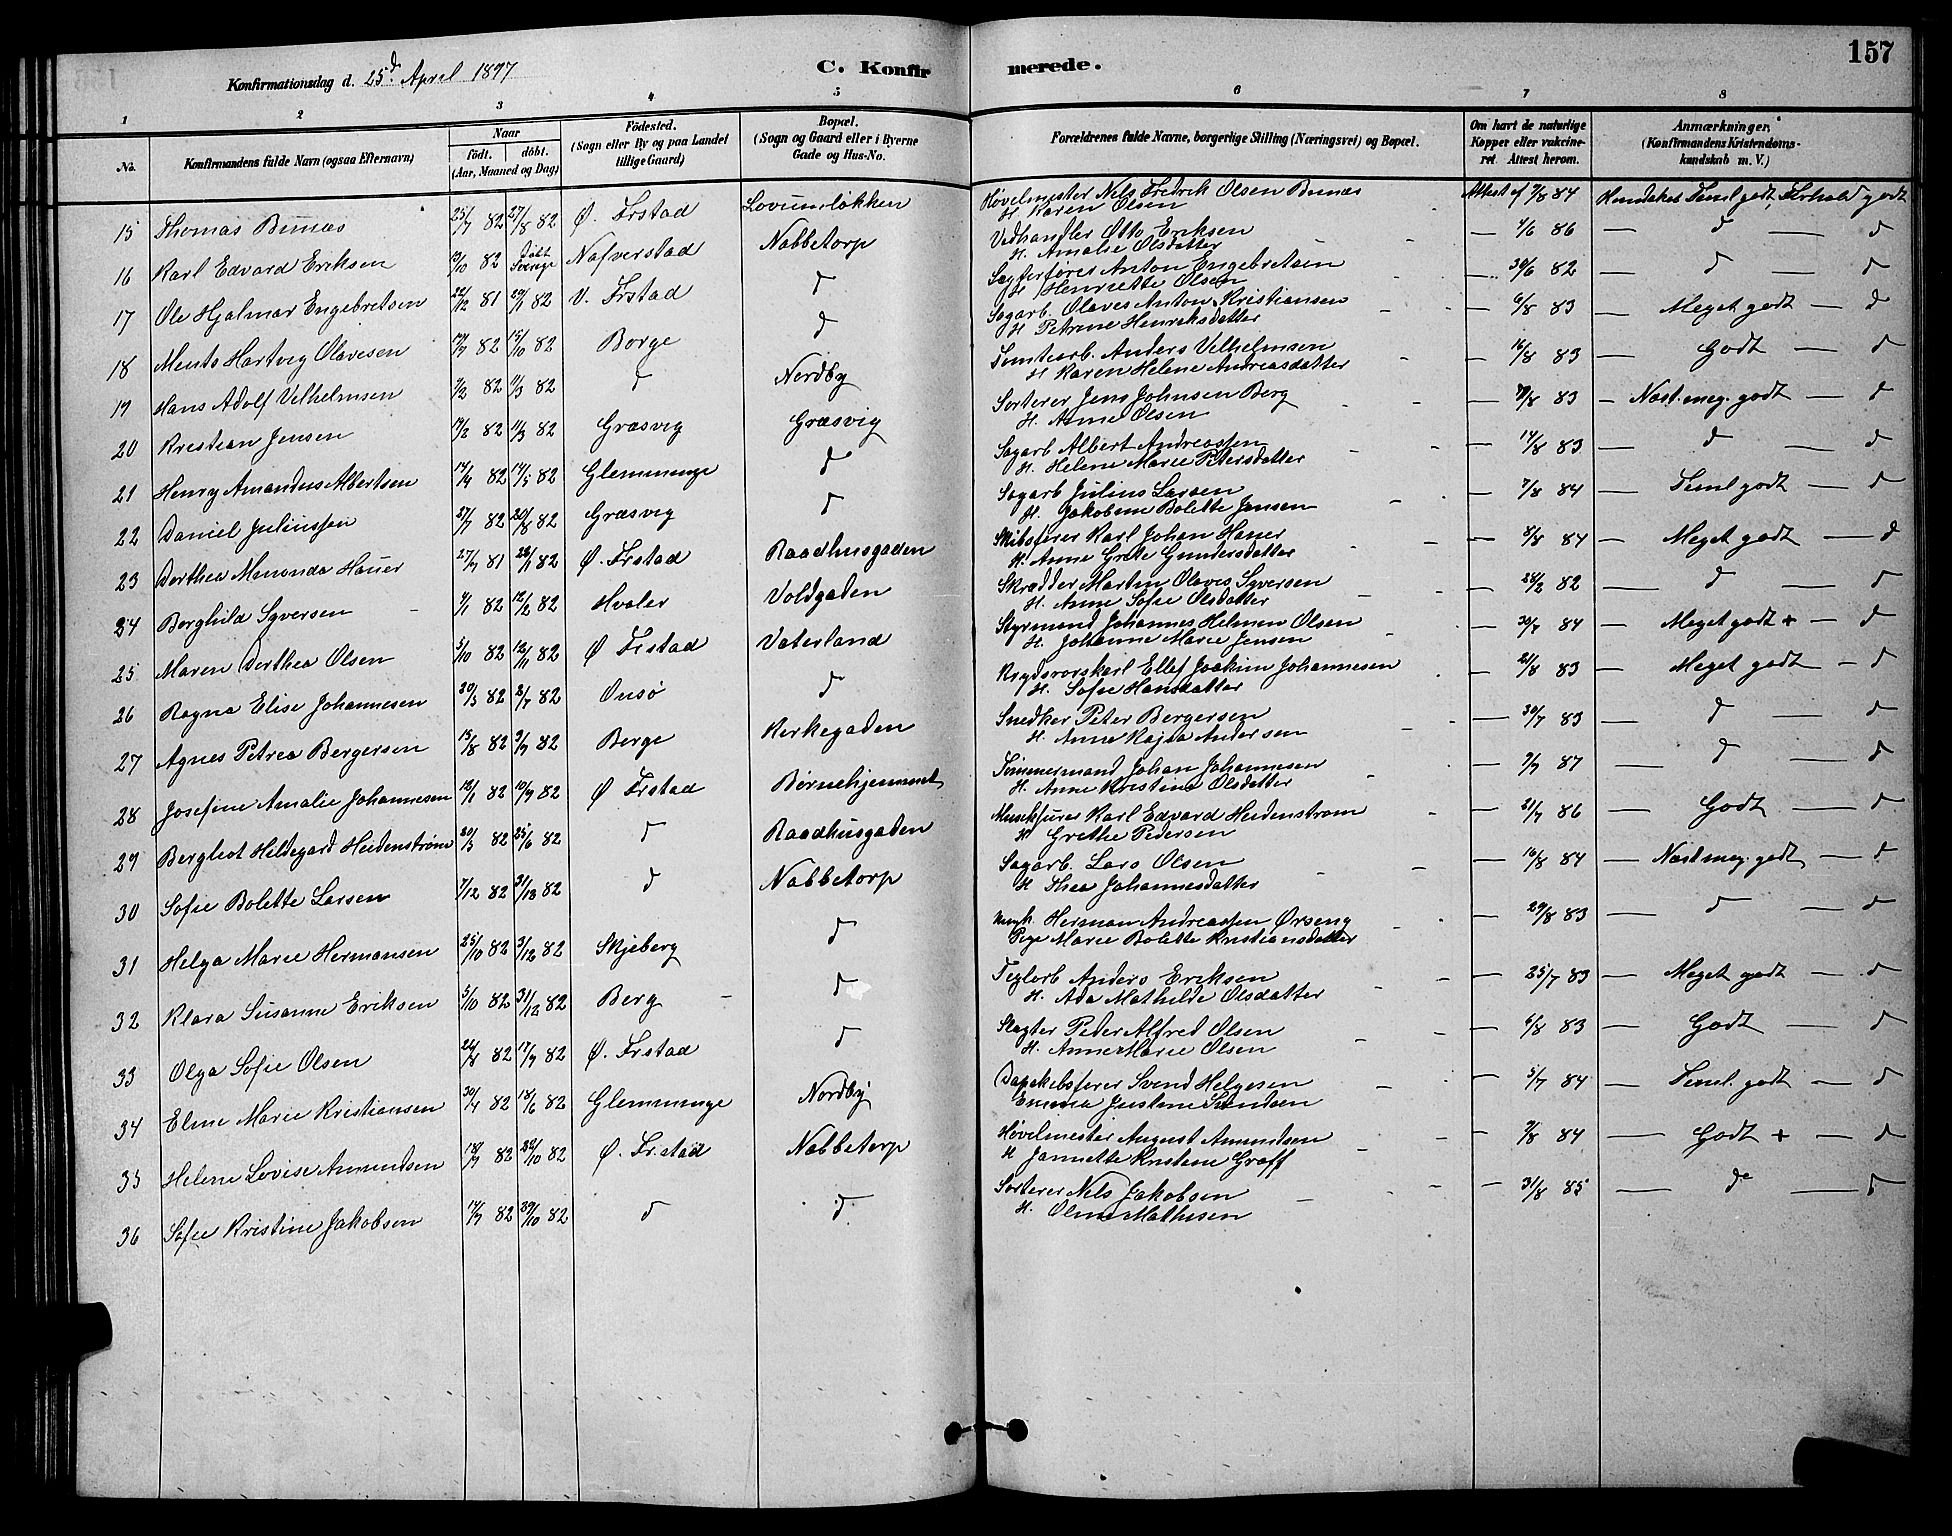 157
Konfirmationsdag d. 25d April 1897
C. Konfirmerede.
1 2 3 4 5 6 7 8
No. Konfirmandens fulde Navn (ogsaa Efternavn) Naar födt. döbt. (Aar, Maaned og Dag) Födested. (Sogn eller By og paa Landet tillige Gaard) Bopæl. (Sogn og Gaard eller i Byerne Gade og Hus-No. Forældrenes fulde Navne, borgerlige Stilling (Næringsvei) og Bopæl. Om havt de naturlige Kopper eller vakcineret. Attest herom. Anmærkninger. (Konfirmandens Kristendomskundskab m. V.)
15 Thomas Bunæs 25/7 82 27/8 82 Ø. Frstad Høvelmester Nels Fredrik Olsen Bunæs H. Karen Olsen Attest af 7/8 84 Kundskab Teml godt, Forhold godt
16 Karl Edvard Eriksen 19/10 82 Døbt Sverige Nafverstad Nabbetorp Vedhandler Otto Eriksen H. Amalie Olsdatter — 7/6 86 — d — d
17 Ole Hjalmar Engebretsen 22/12 81 29/1 82 V. Frstad d Anton Engebretsen H. Henriette Olsen — 30/6 82 — d — d
18 Hartvig Olavesen 82 15/10 82 Borge d Sagarb. Olaves Anton Kristiansen H. Petrine Henriksdatter — 6/8 83 — Meget godt — d
19 Hans Adolf Vilhelmsen 7/2 82 11/3 82 d Nordby Tomtearb. Anders Velhelmsen H. Karen Helene Andreasdatter — 16/8 83 — Godt — d
20 Kristian Jensen 17/2 82 11/3 82 Græsvig Græsvig Sorterer Jens Johnsen Berg H. Anne Olsen — 83 — Næst. meg. godt — d
21 Henry Amandus Albertsen 14/4 82 14/5 82 Glemminge d Sagarb Albert Andreassen H. Helene Marie Petersdatter — 14/8 83 — d — d
22 Daniel Juliussen 27/7 82 20/8 82 Græsvig d Sagarb Julius Larsen H. Jakobine Bolette Jensen — 7/8 84 — Teml godt — d
23 Dorthea Hauer 27/9 81 26/1 82 Ø. Frstad Raadhusgaden Skibsfører Karl Johan Hauer H. Anne Grete Gundersdatter — 8/8 84 — Meget godt — d
24 Borghild Syversen 9/1 82 12/2 82 Hvaler Voldgaden Skrædder Martin Olaves Syversen H. Anne Sofie Olsdatter — 28/2 82 — d — d
25 Maren Dorthea Olsen 5/10 82 12/11 82 Ø Frstad Vaterland Styrmand Johannes Helmen Olsen H. Johanne Marie Jensen — 30/7 84 — Meget godt + — d
26 Ragna Elise Johannesen 30/5 82 2/7 82 Onsø d Ellef Joakim Johannesen H. Sofie Hansdatter — 21/8 83 — Meget godt — d
27 Agnes Petrea Bergersen 13/8 82 3/9 82 Borge Kirkegaden Snedker Peter Bergersen H. Anne Kajsa Andersen — 30/7 83 — d — d
28 Josefine Amalie Johannesen 12/1 82 10/9 82 Ø Frstad Børnehjemmet Tømmermand Johan Johannesen H. Anne Kristine Olsdatter — 87 — d — d
29 Bergliot Hildegard Heidenstrøm 30/3 82 25/6 82 d Raadhusgaden Karl Edvard Heidenstrøm H Grethe Pedersen — 21/7 86 — Godt — d
30 Sofie Bolette Larsen 7/12 82 31/12 82 d Nabbetorp Sagarb. Lars Olsen H Thea Johannesdatter — 16/8 84 — Næst meg. godt — d
31 Helga Marie Hermansen 25/10 82 3/12 82 Skjeberg d Ungk. Herman Andreassen Ørseng Pige Marie Bolette Kristiansdatter — 29/8 83 — d — d
32 Klara Susanne Eriksen 5/10 82 31/12 82 Berg d Teglarb Anders Eriksen H. Ada Mathilde Olsdatter — 25/7 83 — Meget godt — d
33 Olga Sofie Olsen 82 17/9 82 Ø. Frstad d Slagter Peder Alfred Olsen H. Anne Marie Olsen — 6/8 83 — Godt — d
34 Marie Kristiansen 30/4 82 18/6 82 Glemminge Nordby Svend Helgesen Emma Justine Svendsen — 5/7 84 — Teml. godt — d
35 Helene Lovise Amundsen 18/9 82 22/10 82 Ø. Frstad Nabbetorp Høvelmester August Amundsen H Jannette Kristine Graff — 84 — Godt + — d
36 Sofie Kristine Jakobsen 17/9 82 29/10 82 d d. Sorterer Nels Jakobsen H. Oline Mathisen — 31/8 85 — do — d